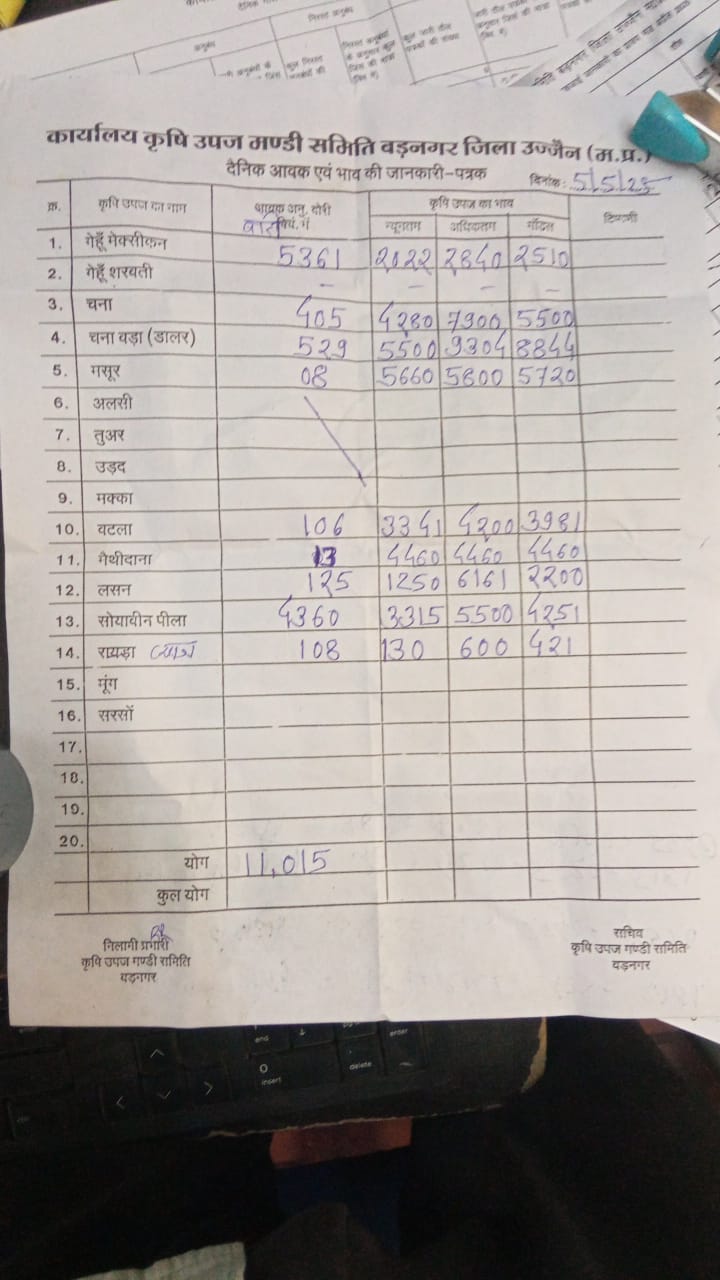 कार्यालय कृषि उपज मण्डी समिति बड़नगर जिला उज्जैन (म.प्र.)
दैनिक आवक एवं भाव की जानकारी-पत्रक
दिनांक: 5/5/25
क्र. कृषि उपज का नाम आवक अनु. बोरी कृषि उपज का भाव टिप्पणी
न्यूनतम अधिकतम मॉडल
1. गेहूँ मेक्सीकन 5361 2022 2840 2510
2. गेहूँ शरबती - - - -
3. चना 405 4280 7900 5500
4. चना बड़ा (डालर) 529 5500 9304 8844
5. मसूर 08 5660 5800 5720
6. अलसी
7. तुअर
8. उड़द
9. मक्का
10. बटला 106 3341 4200 3981
11. मैथीदाना 13 4460 4460 4460
12. लसन 125 1250 6161 2200
13. सोयाबीन पीला 4360 3315 5500 4251
14. रायड़ा प्याज 108 130 600 421
15. मूंग
16. सरसों
17.
18.
19.
20.
योग 11,015
कुल योग
निलामी प्रभारी
कृषि उपज मण्डी समिति
बड़नगर
सचिव
कृषि उपज मण्डी समिति
बड़नगर
end
enter
insert
delete